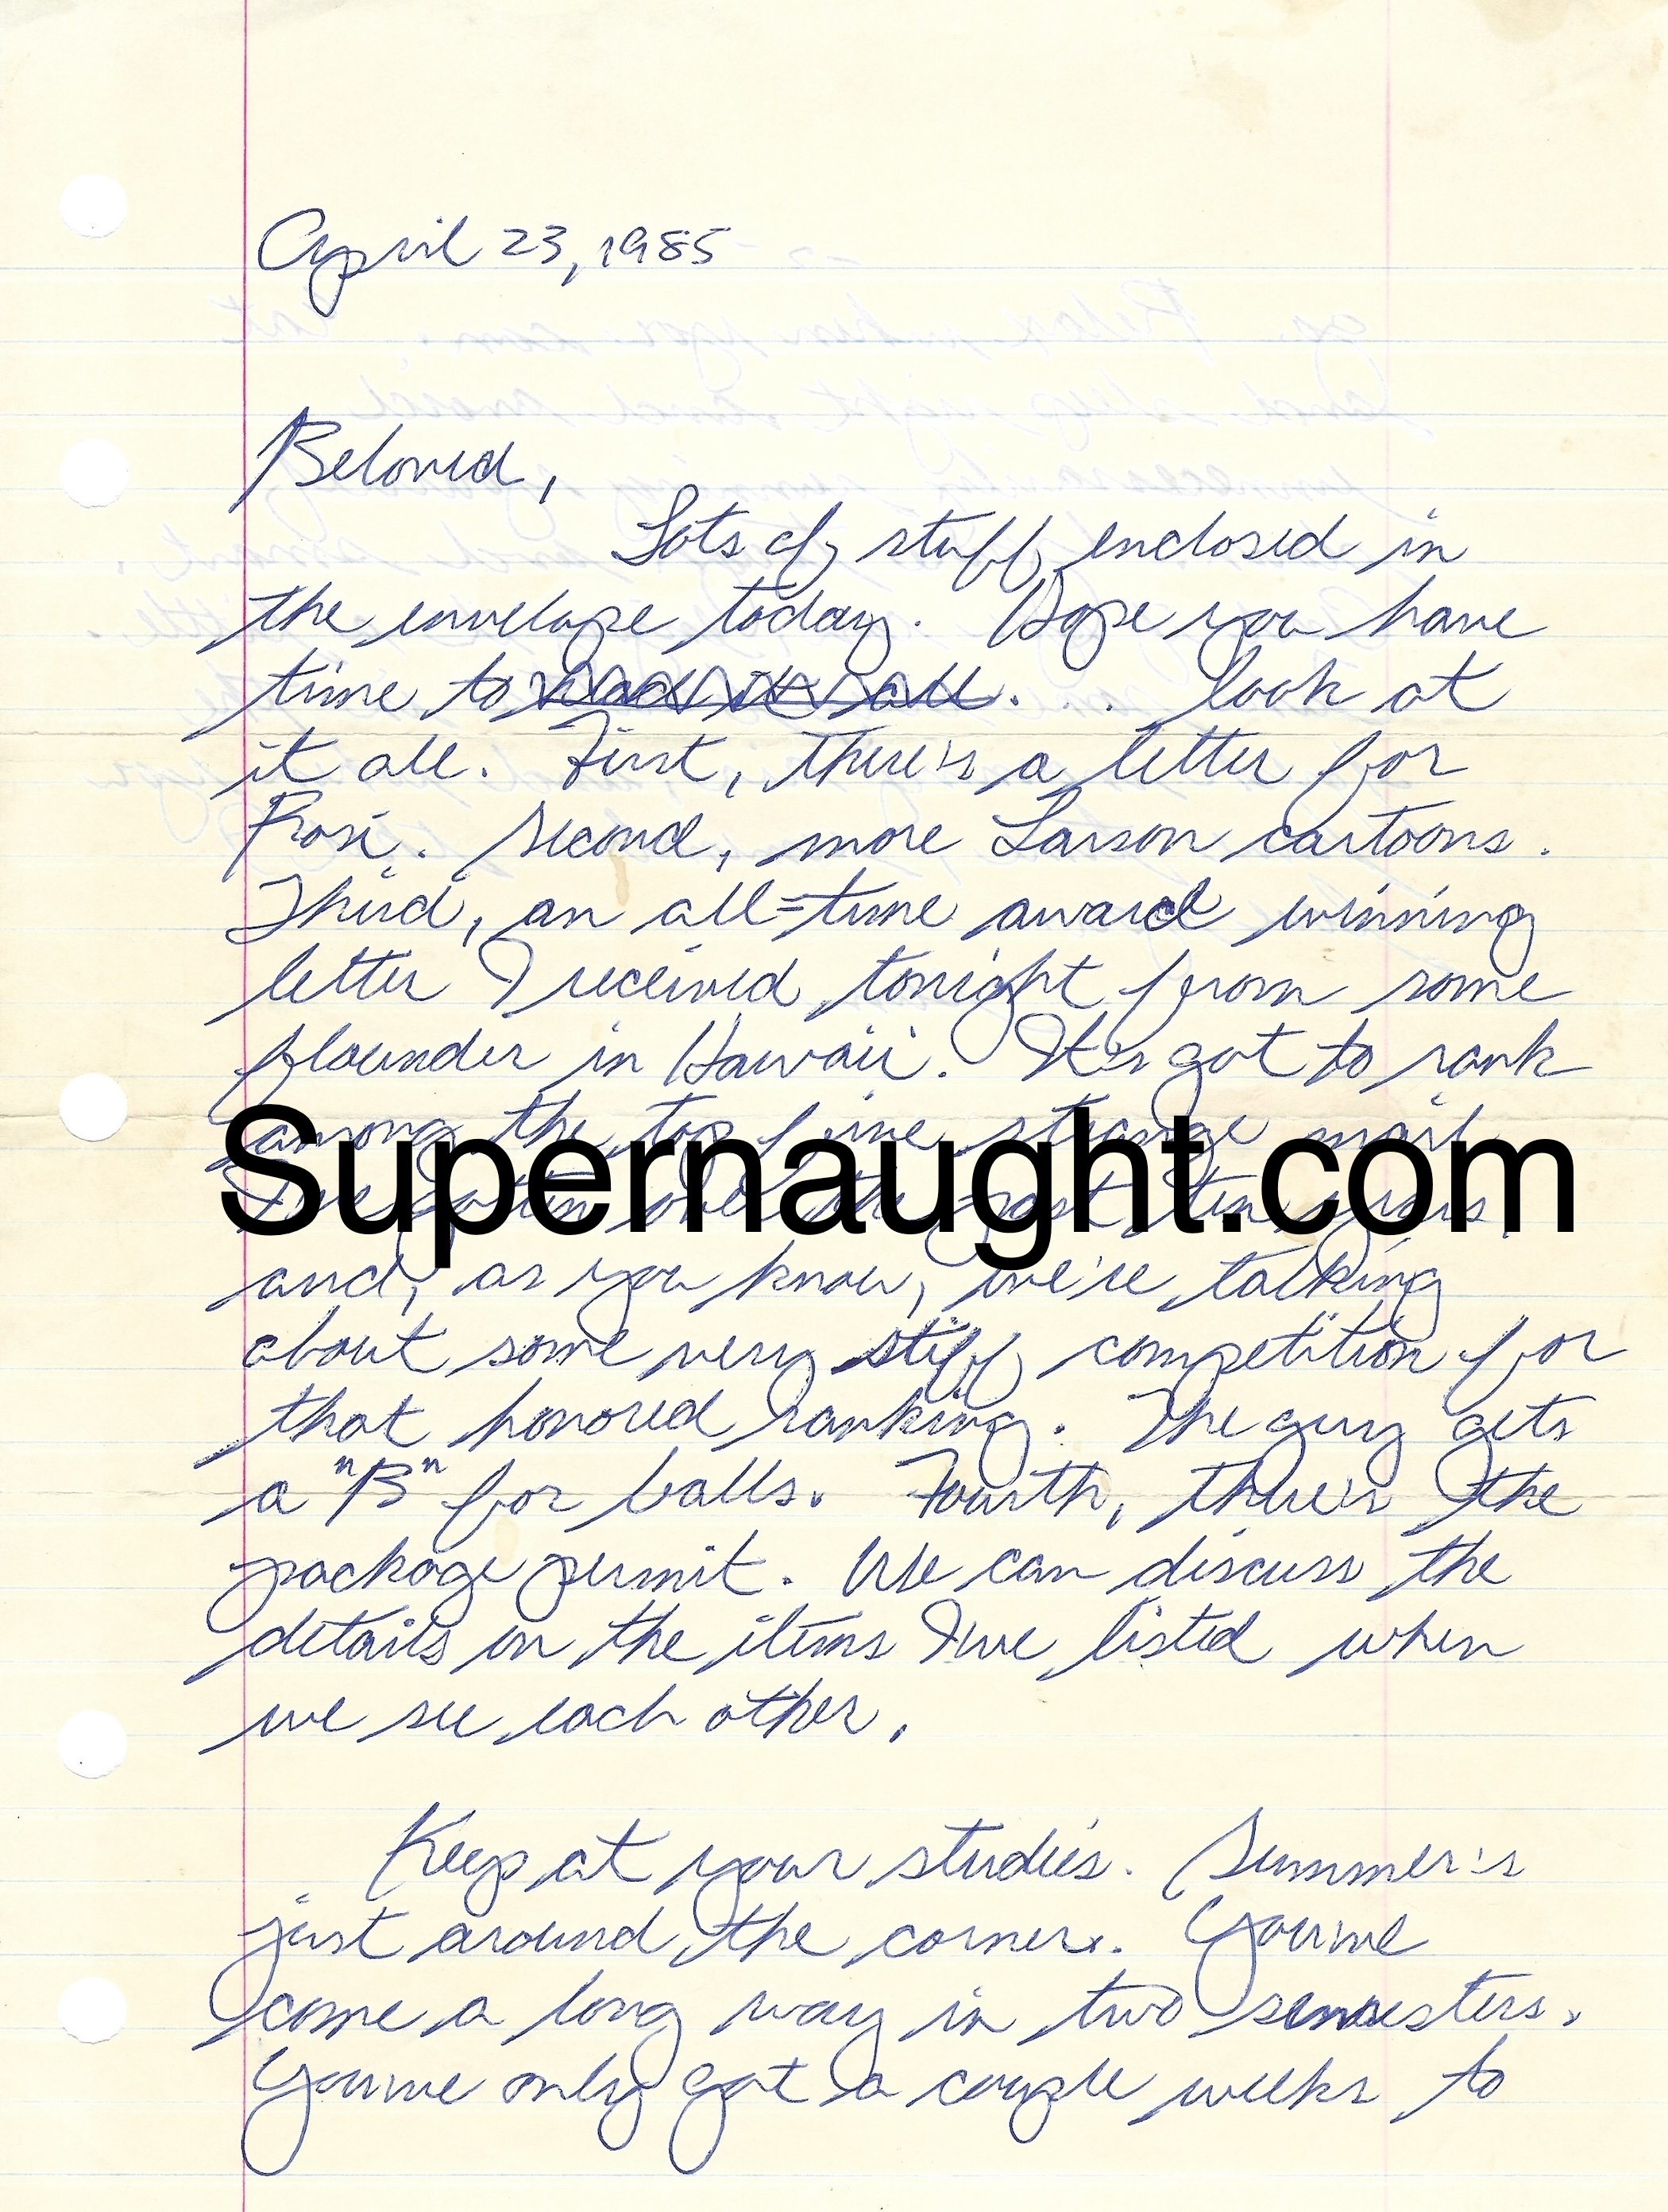 April 23, 1985
Beloved,
Lots of stuff enclosed in
the envelope today. Hope you have
time to read it all. . . look at
it all. First, there's a letter for
Rosi. Second, more Larson cartoons.
Third, an all=time award winning
letter I received tonight from some
flounder in Hawaii. It's got to rank
among the top five strange mail
Supernaught.com
I've gotten over the past ten years
and, as you know, we're talking
about some very stiff competition for
that honored ranking. The guy gets
a "B" for balls. Fourth, there's the
package permit. We can discuss the
details on the items I've listed when
we see each other.
Keep at your studies. Summer's
just around the corner. You've
come a long way in two semesters.
You've only got a couple weeks to